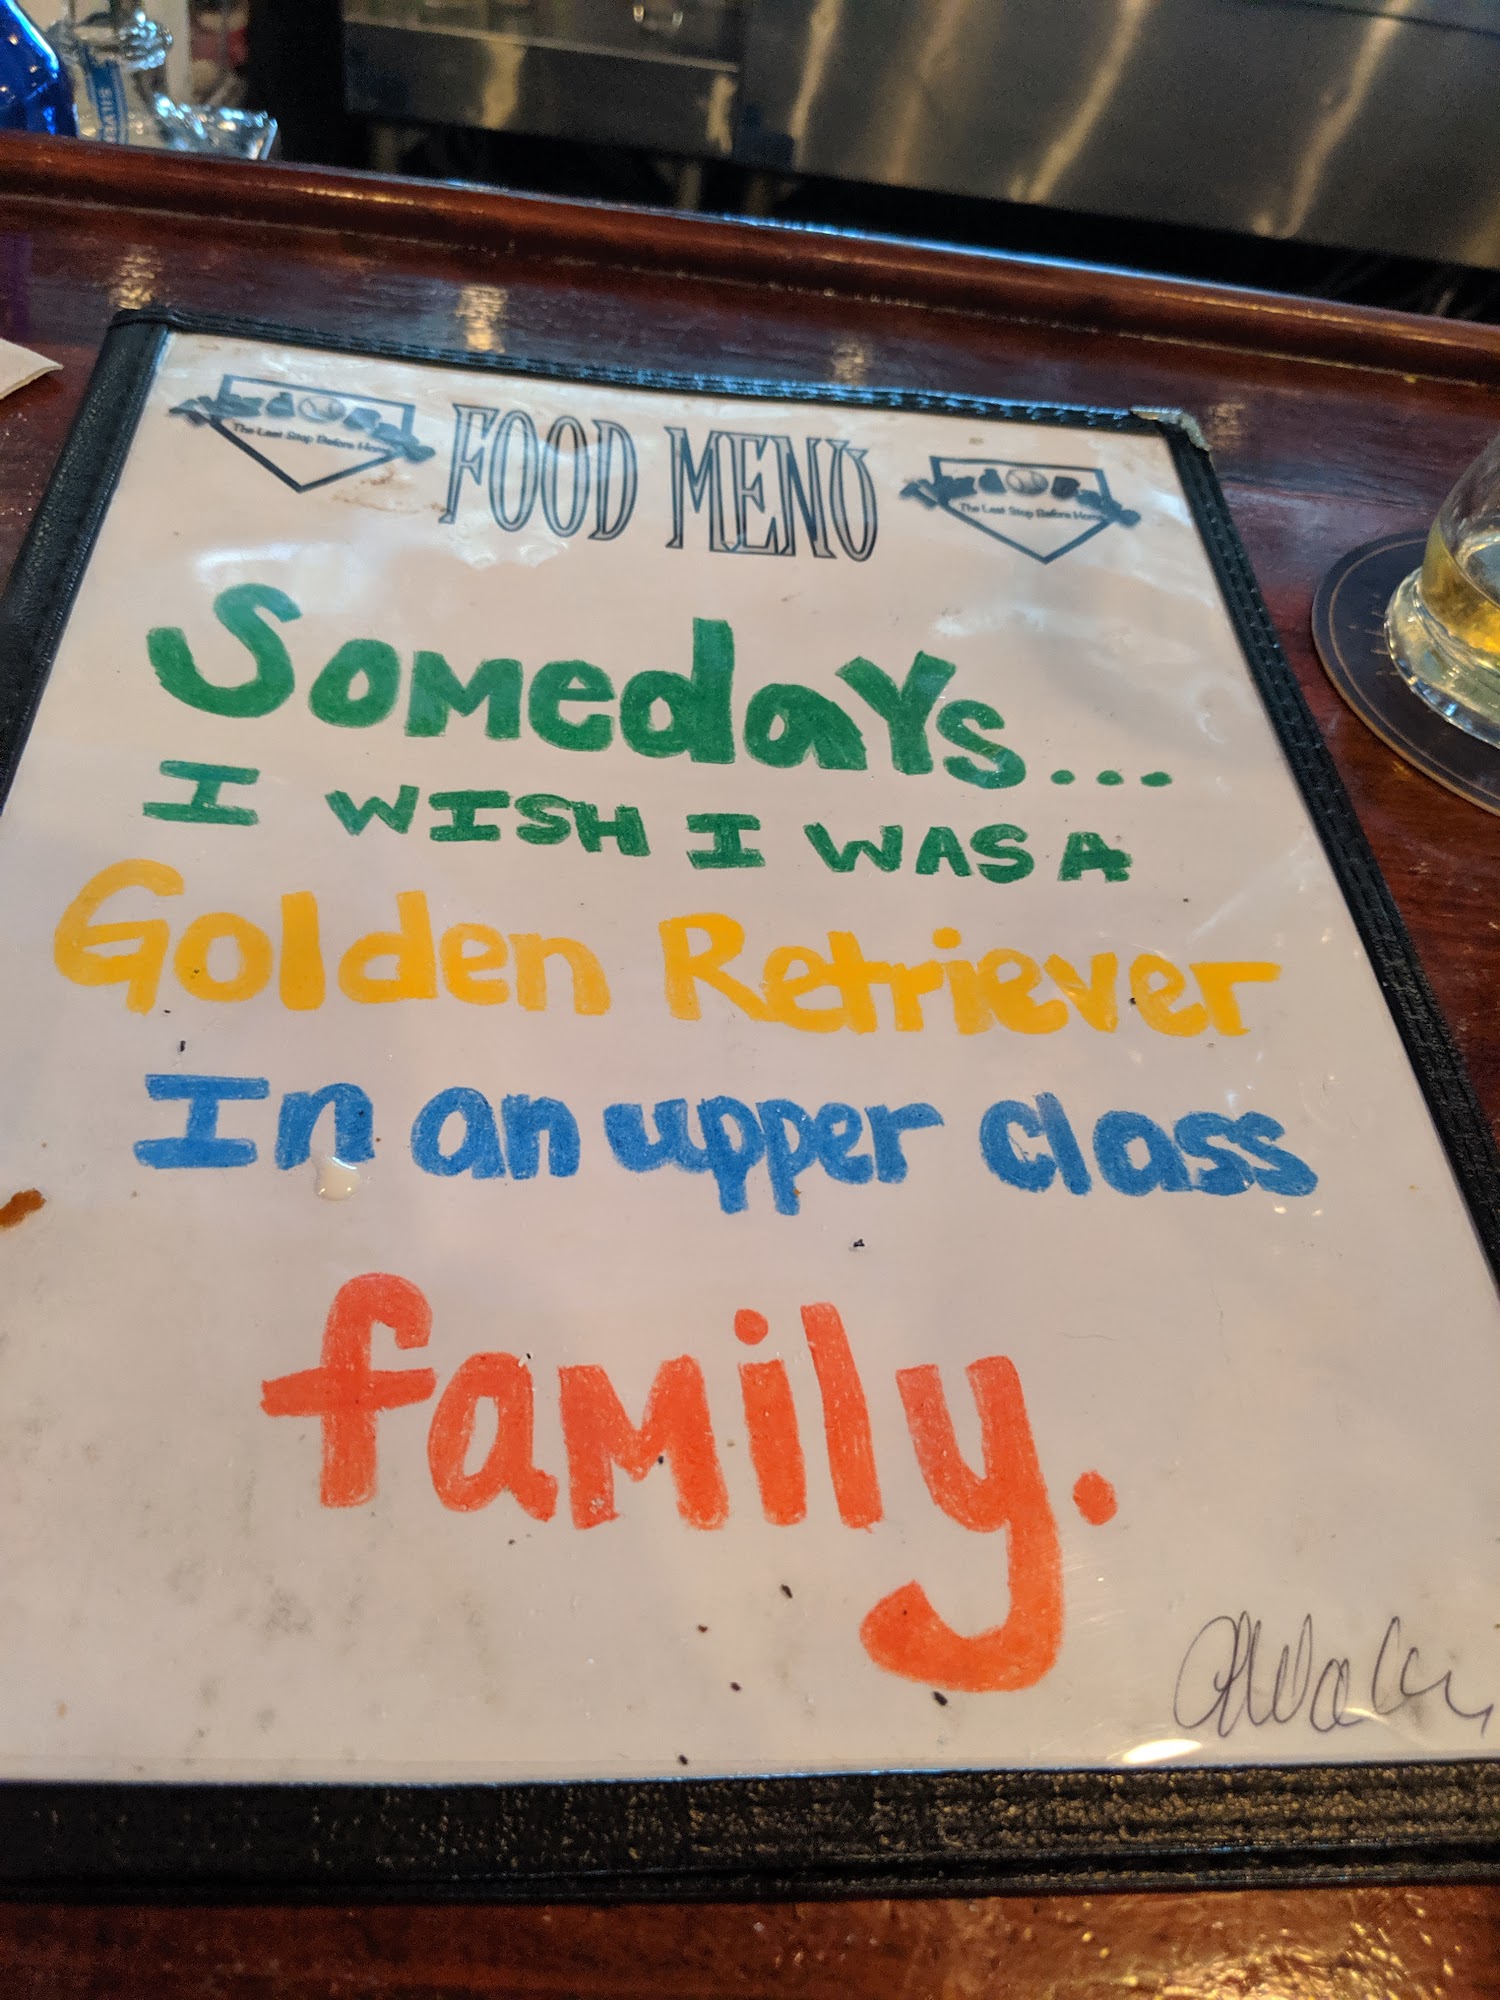 FOOD MENU
The Last Stop Before Home
The Last Stop Before Home
SomedaYs...
I WISH I WAS A
Golden Retriever
In an upper class
family.